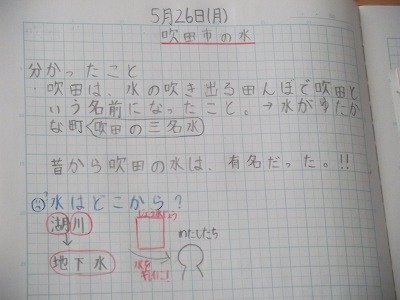 5月26日(月)
吹田市の水
分かったこと
・吹田は、水の吹き出る田んぼで吹田と
いう名前になったこと。→水がゆたか
な町 吹田の三名水
昔から吹田の水は、有名だった。!!
水はどこから?
湖川
じょう水じょう
わたしたち
↓
地下水
水を
きれいに!